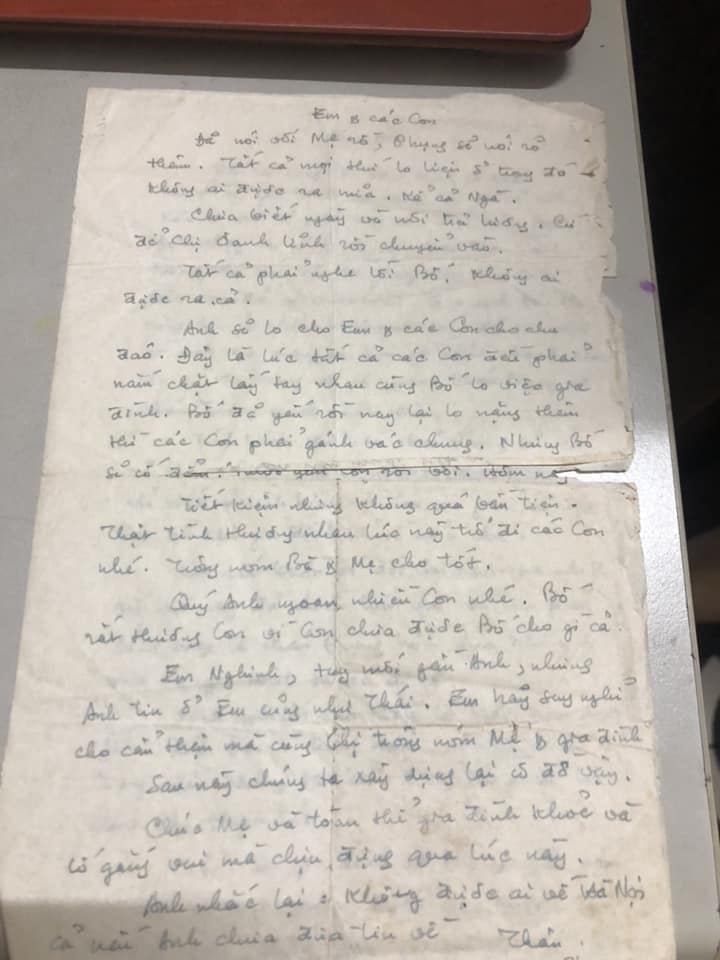 Em & các Con
Đã nói với Mẹ rồi, Phụng sẽ nói rõ
thêm. Tất cả mọi thứ lo liệu ở trong đó
không ai được ra nữa. Kể cả Ngà.
Chưa biết ngày và nơi trả lương. Cứ
để Chị đành lĩnh rồi chuyển vào.
Tất cả phải nghe lời Bố. Không ai
được ra cả.
Anh sẽ lo cho Em & các Con cho chu
đáo. Đây là lúc tất cả các Con đều phải
nắm chặt lấy tay nhau cùng Bố lo việc gia
đình. Bố đã yếu rồi nay lại lo nặng thêm
thì các Con phải gánh vác chung. Nhưng Bố
sẽ cố
Tiết kiệm nhưng không quá bần tiện.
Thật tình thương nhau lúc này trở đi các Con
nhé. Trông nom Bà & Mẹ cho tốt.
Quý Anh ngoan nhiều Con nhé. Bố
rất thương Con vì Con chưa được Bố cho gì cả.
Em Nghinh, tuy mới gần Anh, nhưng
Anh tin ở Em cũng như Thái. Em hãy suy nghĩ
cho cẩn thận mà cùng Chị trông nom Mẹ & gia đình
Sau này chúng ta xây dựng lại có đỡ vậy.
Chúc Mẹ và toàn thể gia đình khoẻ và
cố gắng vui mà chịu đựng qua lúc này.
Anh nhắc lại: không được ai về Hà Nội
cả nếu Anh chưa đưa tin về Thân.